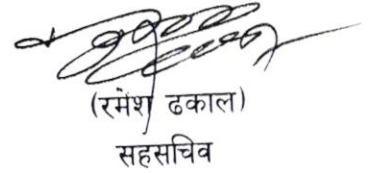 (रमेश ढकाल)
सहसचिव